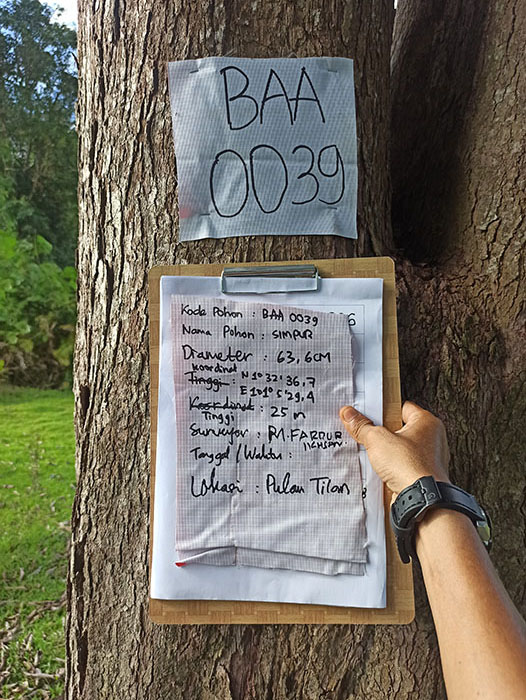 BAA
0039
Kode Pohon : BAA 0039
Nama Pohon : SIMPUR
Diameter : 63,6CM
Koordinat
Tinggi : N 1° 32' 36,7
E 101° 5' 29,4
Koordinat : 25 m
Tinggi
Surveyor : M. FARDUR
ICHSAN
Tanggal / Waktu :
Lokasi : Pulau Tilan